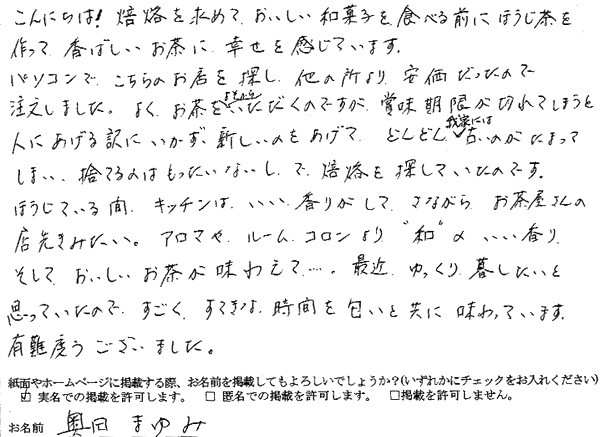 こんにちは！焙烙を求めて、おいしい和菓子を食べる前にほうじ茶を
作って、香ばしいお茶に、幸せを感じています。
パソコンで、こちらのお店を探し、他の所より、安価だったので
注文しました。よく、お茶をよそからいただくのですが、賞味期限が切れてしまうと
人にあげる訳にいかず、新しいのをあげて、どんどん我家には古いのがたまって
しまい、捨てるのはもったいないし、で、焙烙を探していたのです。
ほうじている間、キッチンは、いい香りがして、さながら、お茶屋さんの
店先きみたい。アロマや、ルームコロンより、“和”の、いい香り、
そして、おいしいお茶が味わえて…。最近、ゆっくり、暮したいと
思っていたので、すごく、すてきな、時間を匂いと共に味わっています。
有難度うございました。
紙面やホームページに掲載する際、お名前を掲載してもよろしいでしょうか？（いずれかにチェックをお入れください）
☑ 実名での掲載を許可します。 □ 匿名での掲載を許可します。 □掲載を許可しません。
お名前 奥田 まゆみ